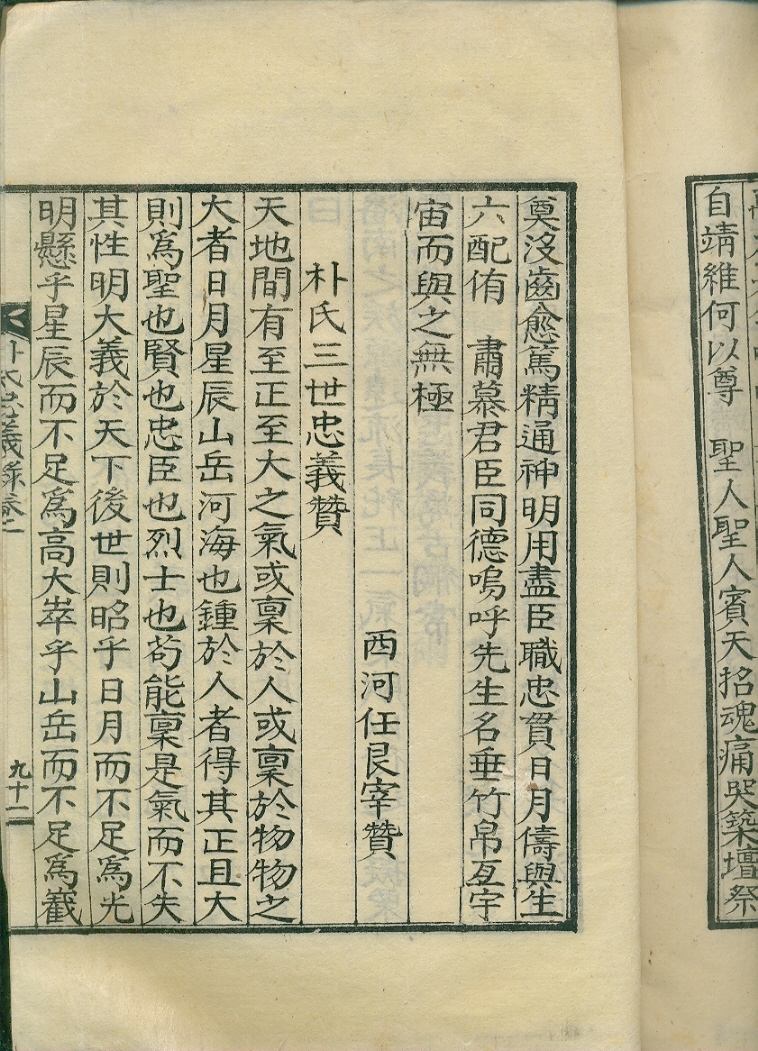 自靖維何以尊 聖人聖人賓天招魂痛哭築壇祭
奠沒齒愈篤精通神明用盡臣職忠貫日月儔與生
六配侑 肅慕君臣同德嗚呼先生名垂竹帛亙宇
宙而與之無極
西河任艮宰贊
朴氏三世忠義贊
天地間有至正至大之氣或稟於人或稟於物物之
大者日月星辰山岳河海也鍾於人者得其正且大
則爲聖也賢也忠臣也烈士也苟能稟是氣而不失
其性明大義於天下後世則昭乎日月而不足爲光
明懸乎星辰而不足爲高大崒乎山岳而不足爲巀
朴氏忠義錄卷二
九十二